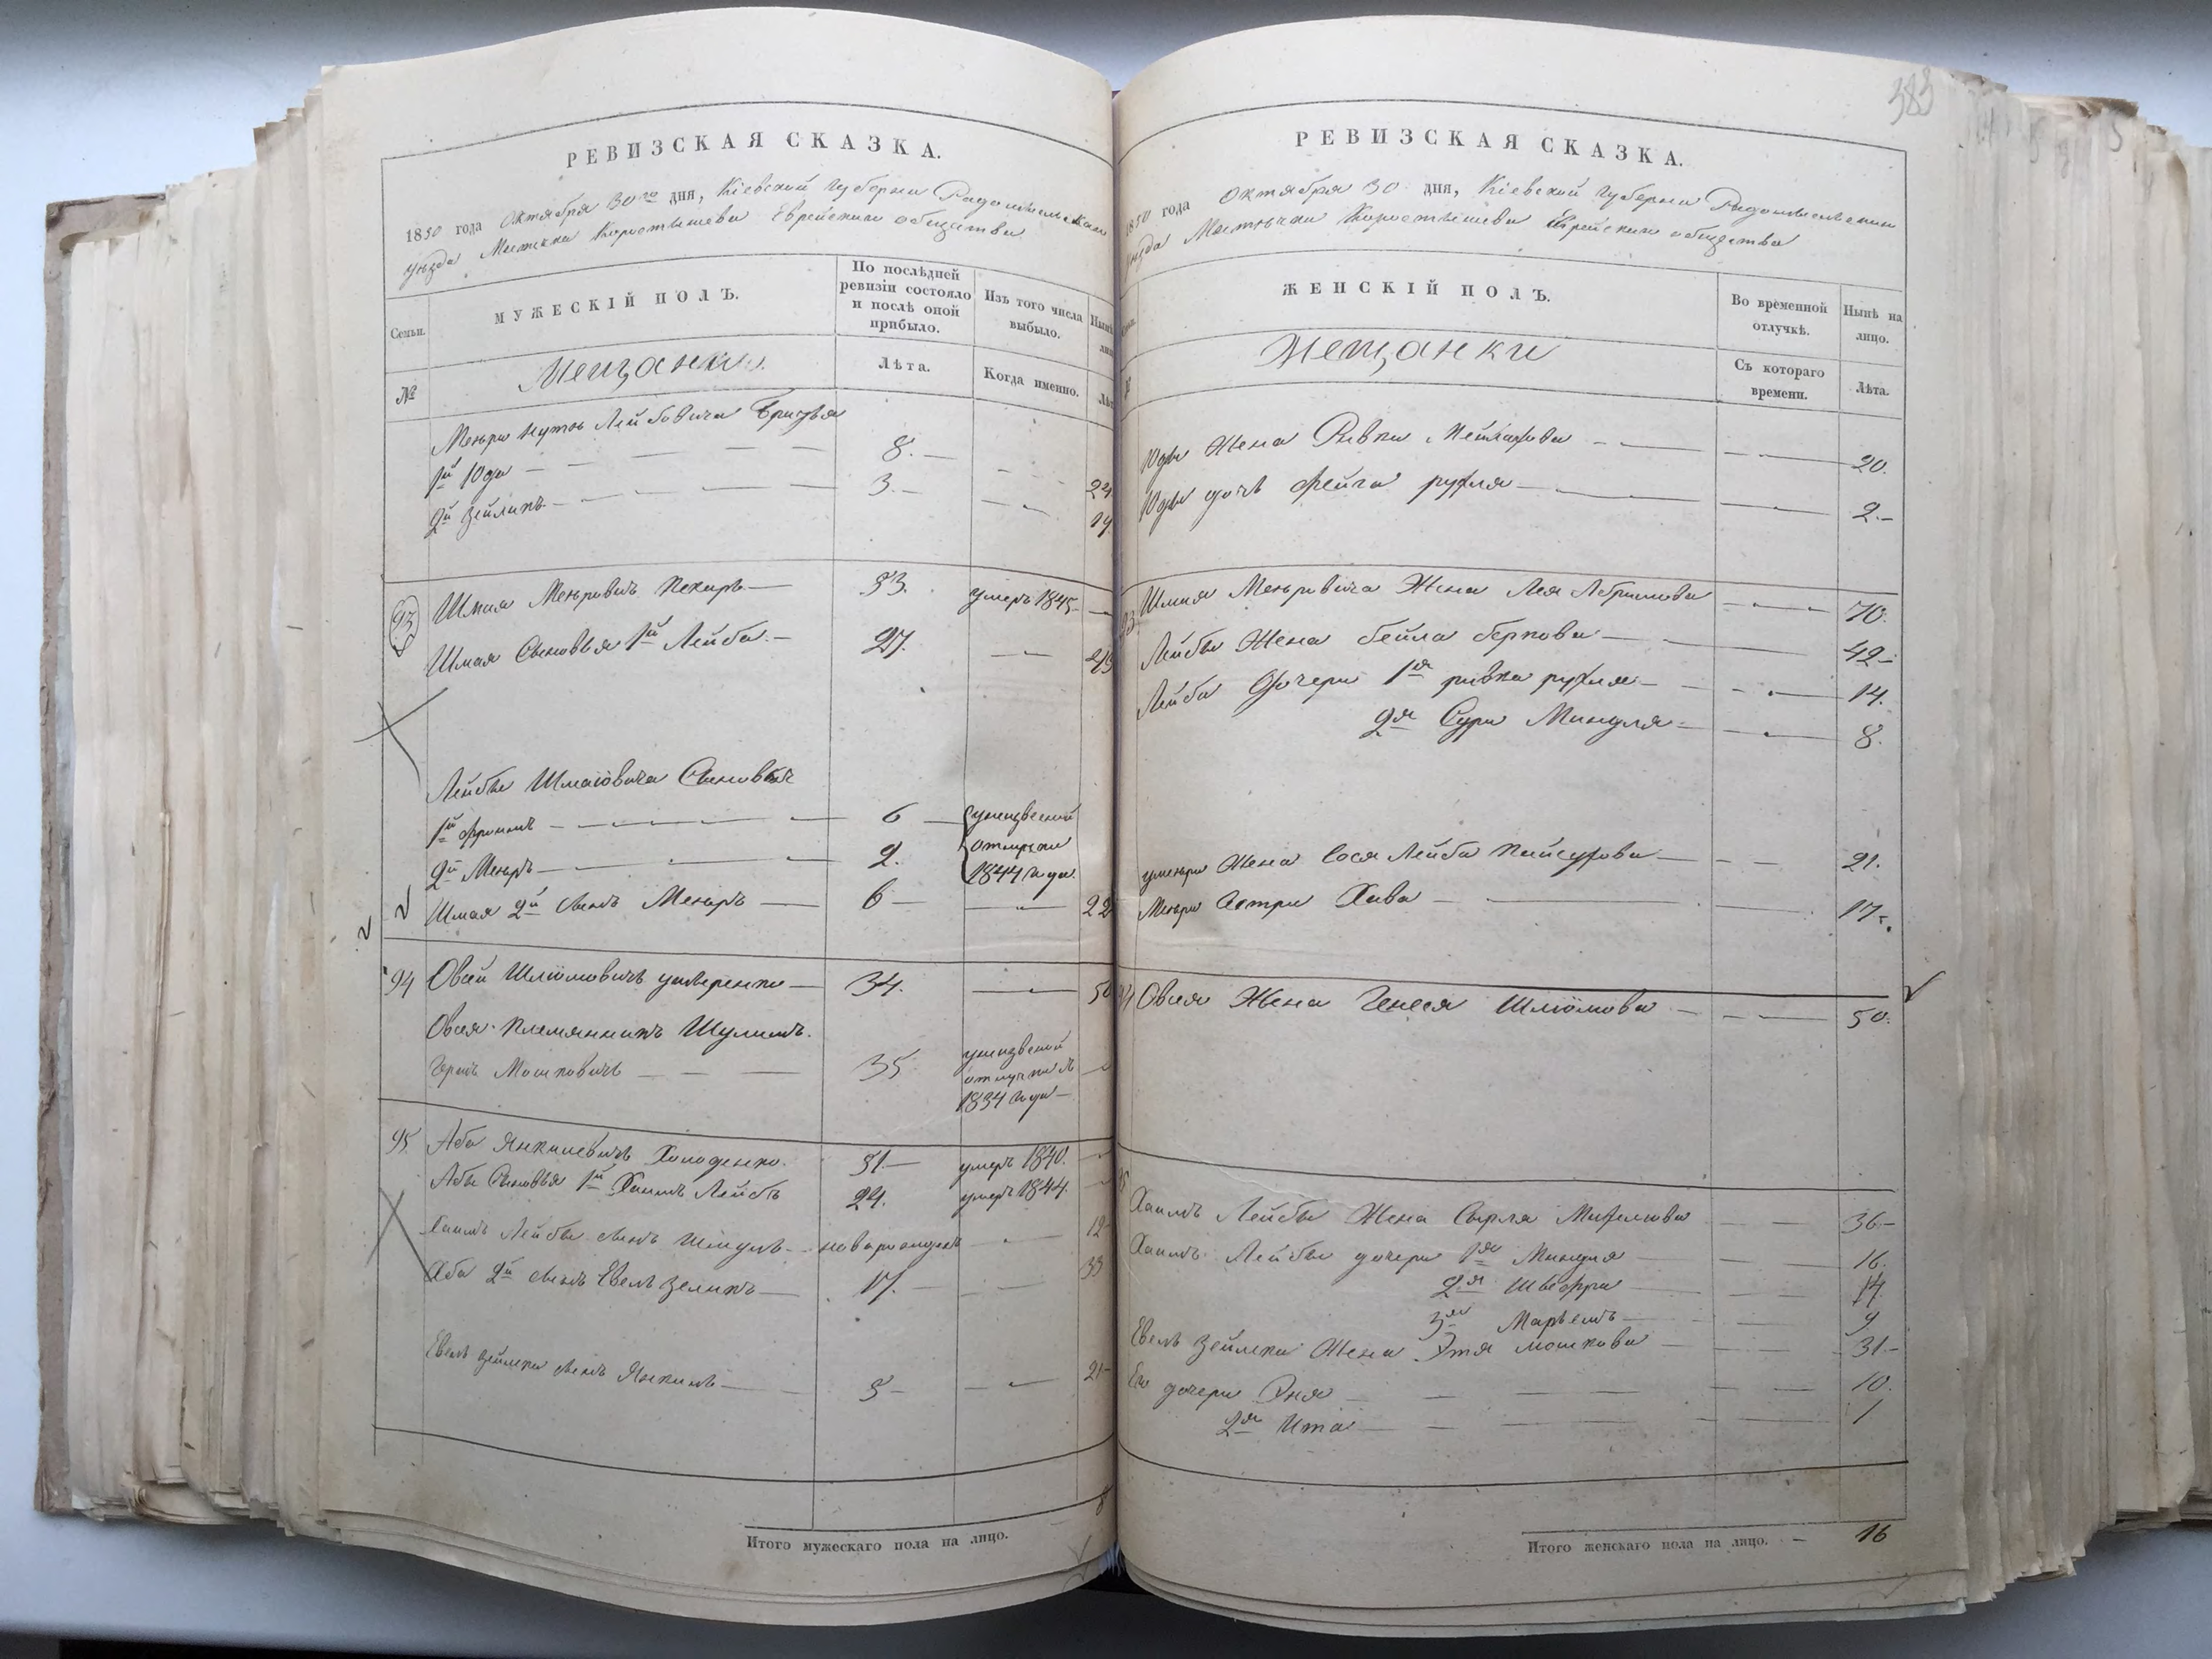 РЕВИЗСКАЯ СКАЗКА.
1850 года Октября 30го дня, Кіевской Губерніи Радомысльскаго
уѣзда Мѣстечка Коростышева Еврейскаго общества
Семьи.
МУЖЕСКІЙ ПОЛЪ.
По послѣдней ревизіи состояло и послѣ оной прибыло.
Изъ того числа выбыло.
№
Мещане.
Лѣта.
Когда именно.
Меьра Лейбовича
1й Юда 8. 24
2й Зейликъ 3. 19
93 Шмая Меьровичъ Пекаръ 53. умеръ 1845
Шмая Сыновья 1й Лейба 27.
Лейбы Шмаіовича Сыновья
1й Фроимъ 6
2й Меьръ 2. отлучки 1844 года
Шмая 2й сынъ Меьръ 6 22
94 Овсей Шліомовичъ 34. 50
Овсея племянникъ Шулимъ
Гершъ Мошковичъ 35 отлучки 1834 года
95 Аба Янкилевичъ Холоденко. 51 умеръ 1840.
Абы Сыновья 1й Хаимъ Лейбъ 24. умеръ 1844.
Хаимъ Лейбы сынъ Шмуль новорожденъ 12
Аба 2й сынъ Евель Зеликъ 17. 33
Евель Зейлика сынъ Янкель 5 21
8
Итого мужескаго пола на лицо.
383
РЕВИЗСКАЯ СКАЗКА.
1850 года Октября 30 дня, Кіевской Губерніи Радомысльскаго
уѣзда Мѣстечка Коростышева Еврейскаго общества
ЖЕНСКІЙ ПОЛЪ.
Во временной отлучкѣ.
Нынѣ на лицо.
Мещанки
Съ котораго времени.
Лѣта.
Юды Жена Ривка 20.
Юды дочь Фейга рухля 2.
93 Шмая Меьровича Жена Лея Абрамова 70.
Лейбы Жена бейла беркова 42
Лейба Дочери 1я ривка рухля 14.
2я Сура Миндля 8.
Жена Сося Лейба 21.
Меьра Сестра Хава 17.
94 Овсея Жена Генеся Шліомова 50.
95
Хаимъ Лейбы Жена Сырля Михелева 36
Хаимъ Лейбы дочери 1я Миндля 16
2я 14
3я Марьемъ 9
Евель Зейлика Жена Этя Мошкова 31
Ею дочери Эня 10.
2я Ита 1
Итого женскаго пола на лицо. 16